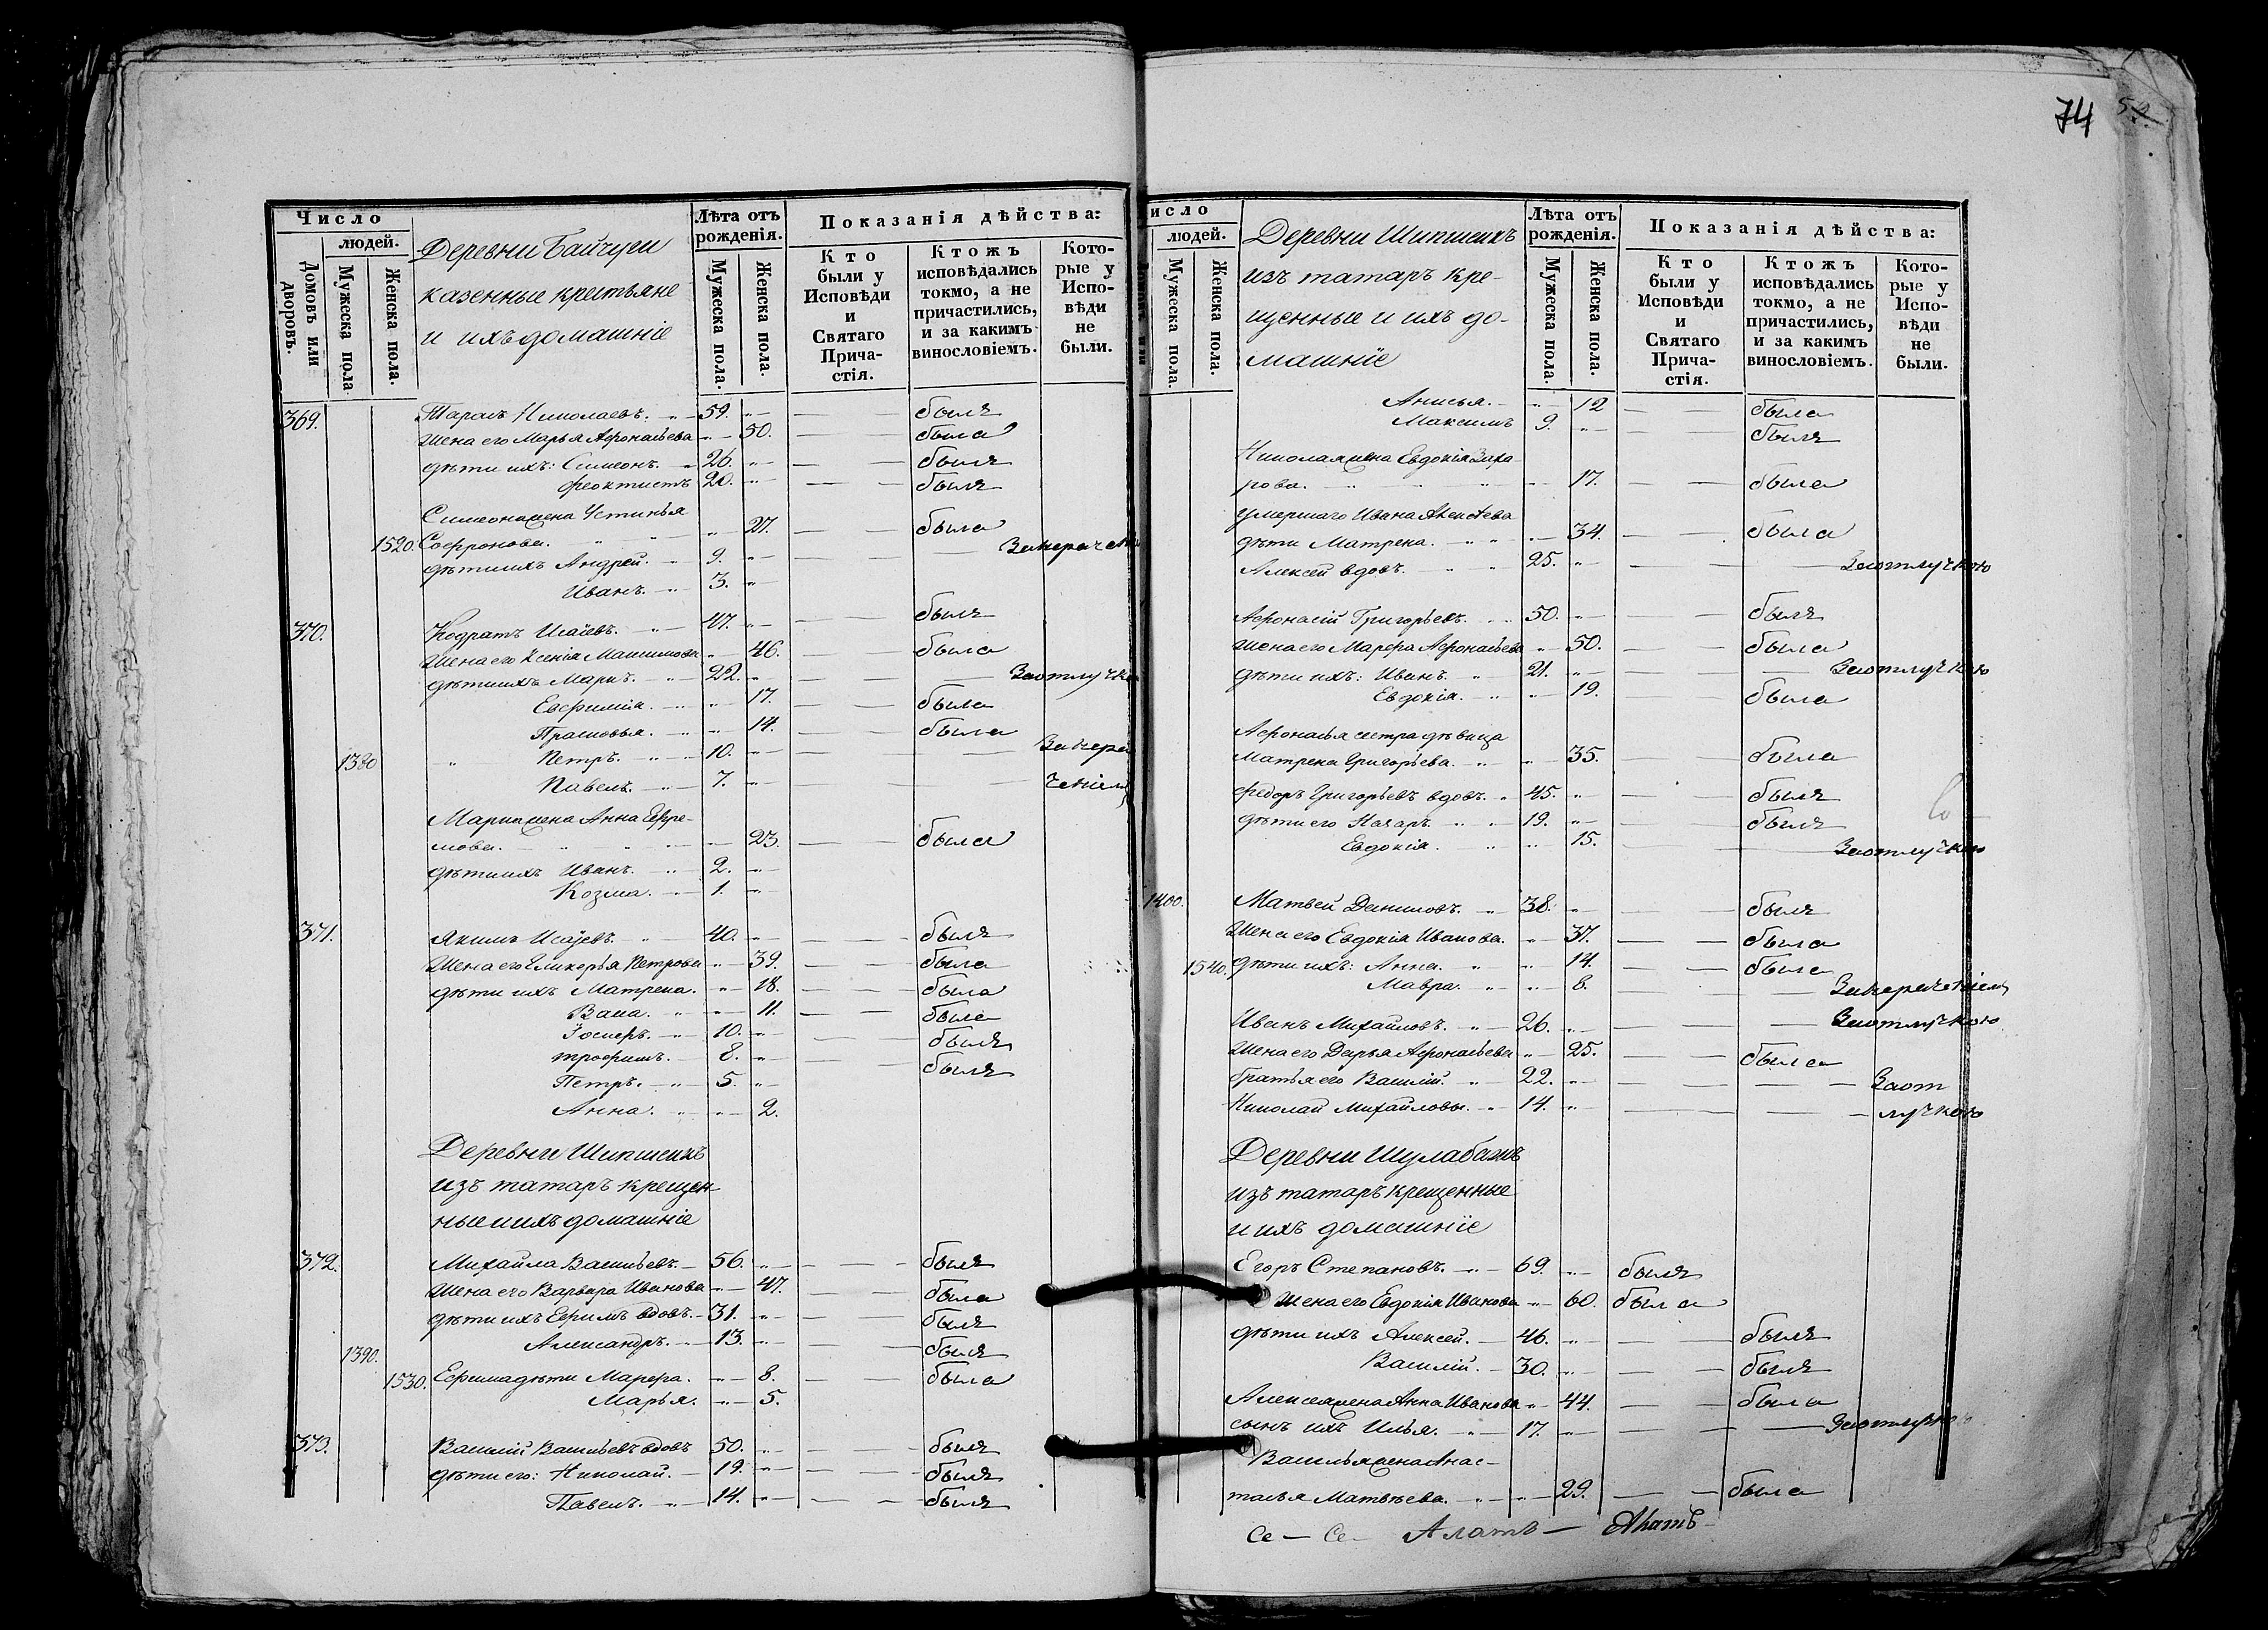 74
Число
людей.
Домовъ или дворовъ.
Мужеска пола
Женска пола.
Деревни Байчуги
казенные крестьяне
и ихъ домашніе
Лѣта отъ рожденія.
Мужеска пола.
Женска пола.
Показанія дѣйства:
Кто были у Исповѣди и Святаго Прича-стія.
Ктожъ исповѣдались токмо, а не причастились, и за какимъ винословіемъ.
Кото-рые у Испо-вѣди не были.
369. Тарасъ Николаевъ. 59. былъ
Жена его Марья Афонасьева 50. была
дѣти ихъ: Симеонъ. 26. былъ
Феоктистъ 20. былъ
Симеона жена Устинья
1520. Софронова. 27. была
дѣти ихъ Андрей. 9.
Иванъ. 3.
370. Кодратъ Исаевъ. 47. былъ
Жена его Ксенія Максимова 46. была
дѣти ихъ Маркъ. 22. За отлучкою
Евфимія. 17. была
Прасковья. 14. была
1380 Петръ. 10.
Павелъ. 7.
Марка жена Анна Ефре-
мова. 23. была
дѣти ихъ Иванъ. 2.
Козма. 1.
371. Якимъ Исаевъ. 40. былъ
Жена его Гликерья Петрова 39. была
дѣти ихъ Матрена. 18. была
Васа. 11. была
Іосифъ. 10. былъ
Трофимъ. 8. былъ
Петръ. 5.
Анна. 2.
Деревни Шипшихъ
изъ татаръ крещен-
ные и ихъ домашніе
372. Михайла Васильевъ. 56. былъ
Жена его Варвара Иванова 47. была
дѣти ихъ Ефимъ вдовъ. 31. былъ
Александръ. 13. былъ
1390.
1530. Ефима дѣти Марфа. 8. была
Марья. 5.
373. Василій Васильевъ вдовъ 50. былъ
дѣти его: Николай. 19. былъ
Павелъ. 14. былъ
исло
людей.
Мужеска пола.
Женска пола.
Деревни Шипшихъ
изъ татаръ кре-
щенные и ихъ до-
машніе
Лѣта отъ рожденія.
Мужеска пола.
Женска пола.
Показанія дѣйства:
Кто были у Исповѣди и Святаго Прича-стія.
Ктожъ исповѣдались токмо, а не причастились, и за какимъ винословіемъ.
Кото-рые у Испо-вѣди не были.
Анисья. 12 была
Максимъ 9. былъ
Николая жена Евдокія Заха-
рова. 17. была
умершаго Ивана Алексѣева
дѣти Матрена. 34. была
Алексей вдовъ. 25. За отлучкою
Афонасій Григорьевъ. 50. былъ
Жена его Марфа Афонасьева 50. была
дѣти ихъ: Иванъ. 21. За отлучкою
Евдокія. 19. была
Афонасья сестра дѣвица
Матрена Григорьева. 35. была
Федоръ Григорьевъ вдовъ. 45. былъ
дѣти его Назаръ. 19. былъ
Евдокія. 15. За отлучкою
1400. Матвей Даниловъ. 38. былъ
Жена его Евдокія Иванова. 37. была
1540. дѣти ихъ: Анна. 14. была
Мавра. 8.
Иванъ Михайловъ. 26. За отлучкою
Жена его Дарья Афонасьева 25. была
братья его Василій. 22. За от
Николай Михайловы. 14. лучкою
Деревни Шулабашъ
изъ татаръ крещенные
и ихъ домашніе
Егоръ Степановъ. 69. былъ
Жена его Евдокія Иванова 60. была
дѣти ихъ Алексей. 46. былъ
Василій. 30. былъ
Алексея жена Анна Иванова 44. была
сынъ ихъ Илья. 17. За отлучкою
Василья жена Анас-
тасья Матвѣева. 29. была
Се — Се — Алатъ —